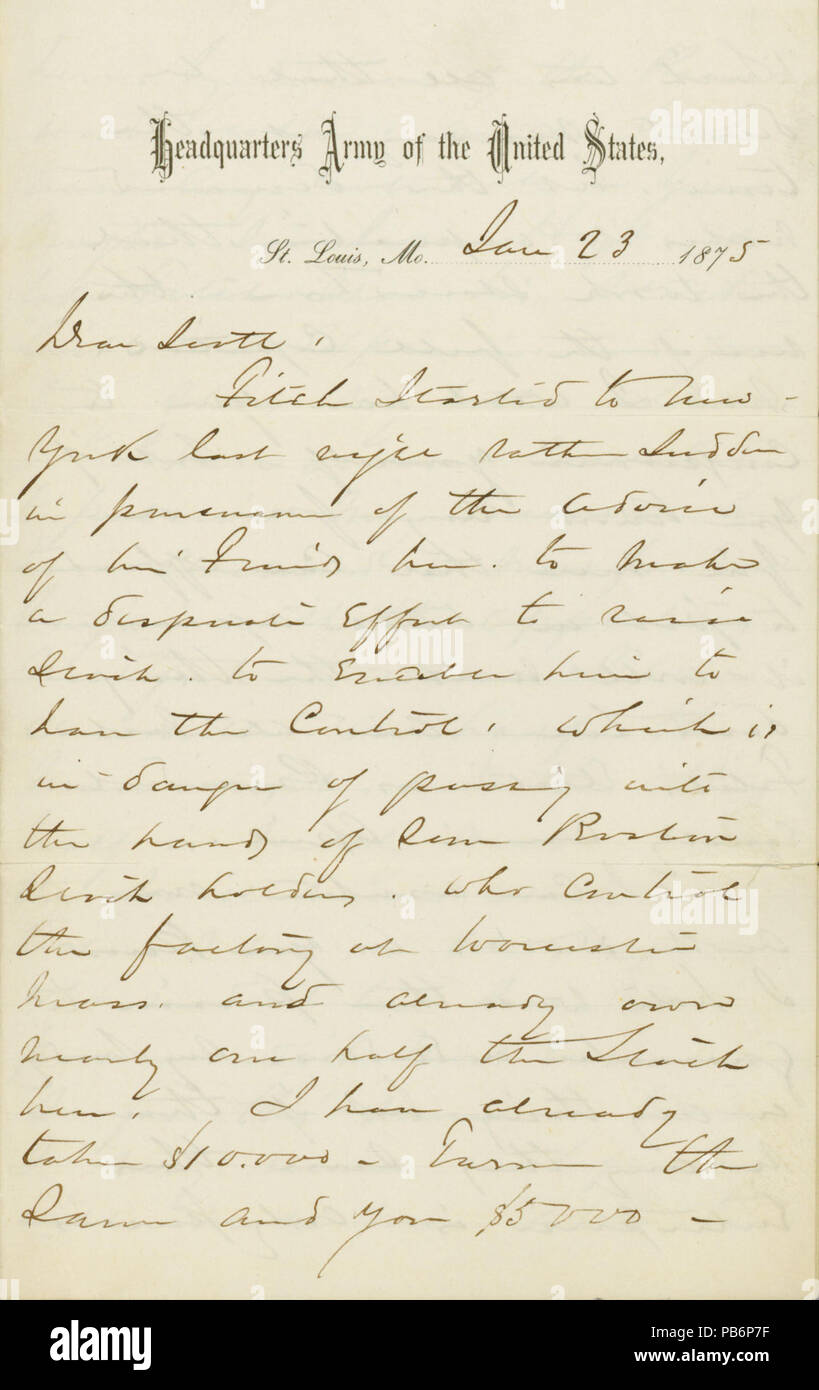 Headquarters Army of the United States,
St. Louis, Mo. Jan 23 1875
Dear Scott,
Fitch started to New-
York last night rather sudden
in pursuance of the advice
of his Friends here. to make
a desperate Effort to raise
Stock. to Enable him to
have the Control, which is
in danger of passing into
the hands of Some Boston
Stock holders. who Control
the factory at Worcester
Mass. and already own
nearly one half the Stock
here. I have already
taken $10.000 - Turner the
Same and you $5000 -
alamy
alamy
alamy
alamy
alamy
Image ID: PB6P7F
www.alamy.com